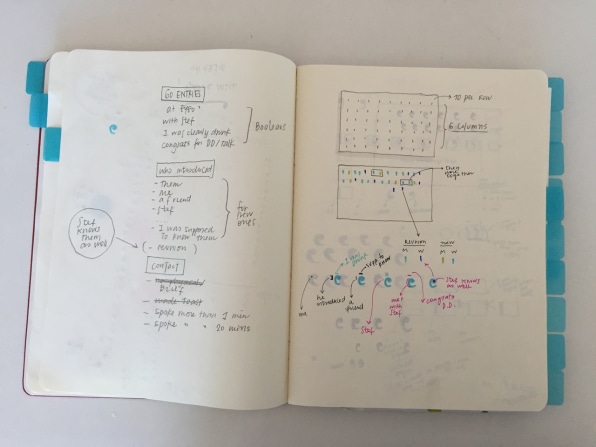 60 ENTRIES
at Eyeo?
with Stef
I was clearly drunk
congrats for DD/talk
Booleans
who introduced
- Them
- me
- a friend
- Stef
- I was supposed
to know them
(- reunion)
for
new
ones
Stef
knows
them
as well
CONTENT
Brief
- spoke more than 1 min
- spoke " " 20 mins
10 per row
6 columns
they
were
together
REUNION
NEW
M W M W
I was drunk
supp. to
know
me
he
introduced
friend
Stef
met
with
Stef
congrats
D.D.
Stef knows
as well